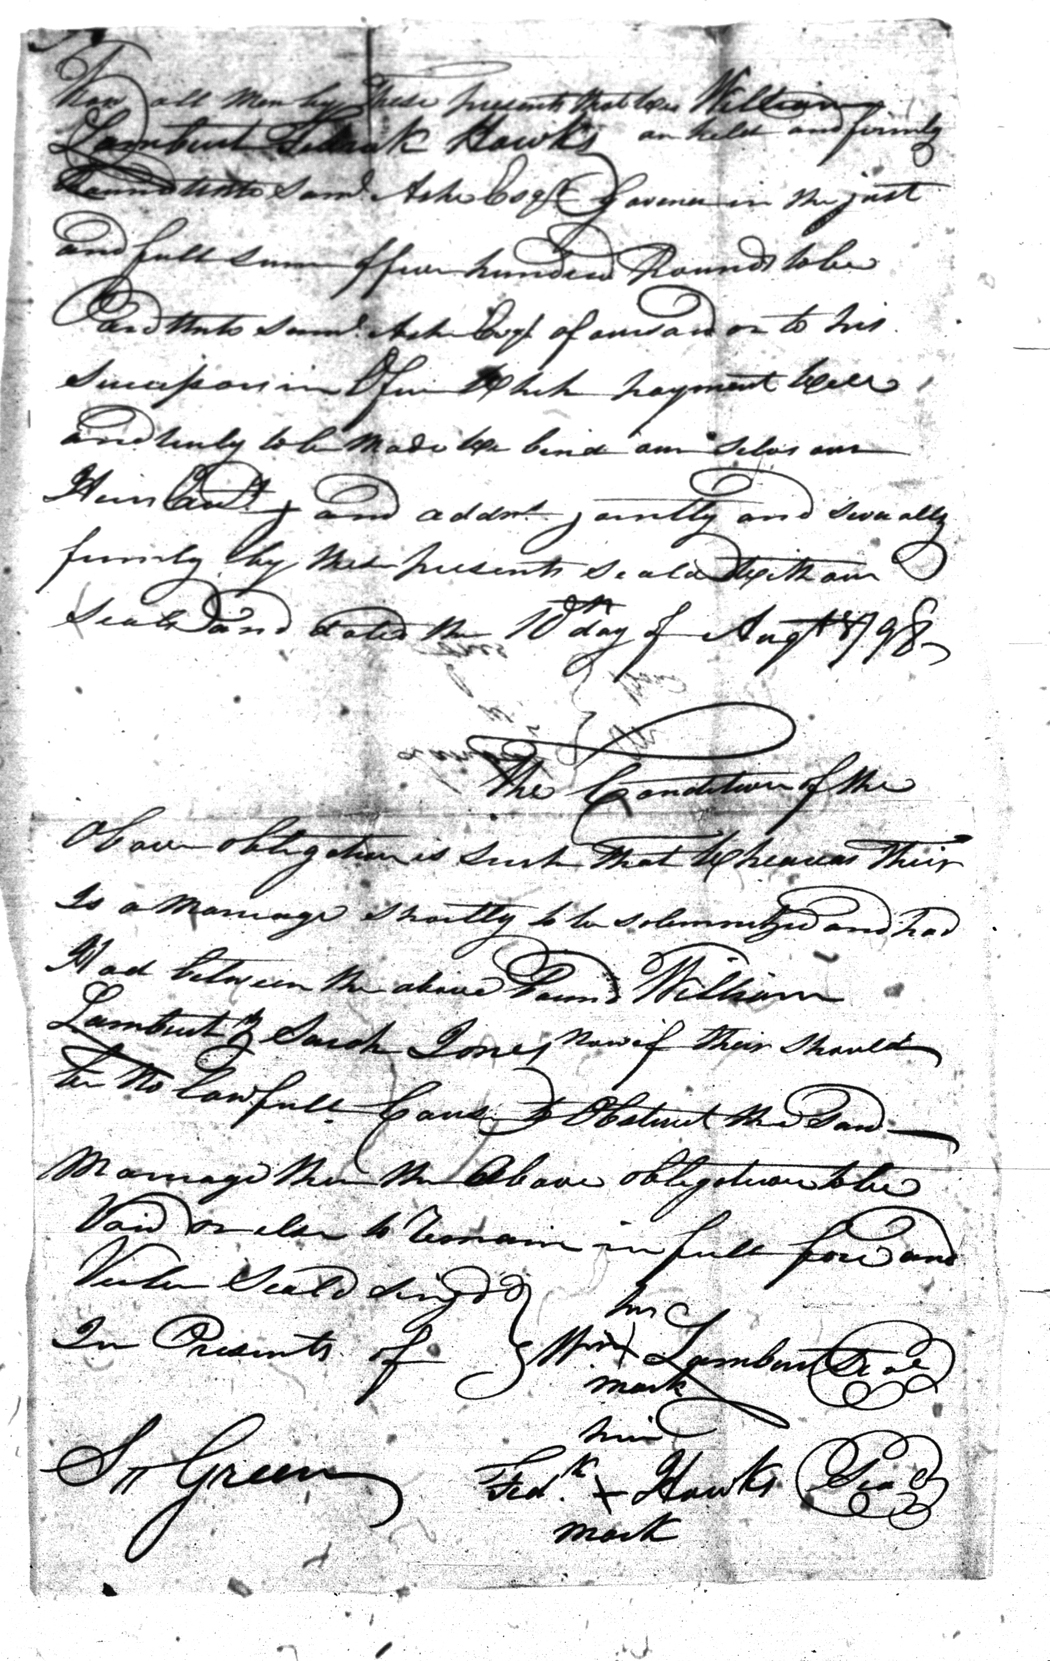 Know all men by These presents that We William
Lambert Fedrick Hawks are held and firmly
Bound unto Saml. Ashe Esqr. Governer in the just
and full sum of five hundred Pounds to be
Paid Unto Saml. Ashe Esqr. aforesaid or to his
Successors in Office Which payment Well
and truly to be Made We bind our selves our
Heirs and addmt. jointly and severally
firmly by these presents Seald With our
Seals and Dated the 10th day of Augt 1798
The Condition of the
above obligation is such that Whereas Their
Is a Marriage shortly to be solemnitzed and had
Had between the above Bound William
Lambert & Sarah Jones Now if their should
be No Lawfull Cause to Obstruct the Said
Marriage then the Above obligation to be
Void or else to Remain in full force and
Vertue Seald Singd &
In Presents of
his
Wm X Lambert Seal
mark
S Green
his
Fedk. X Hawks Seal
mark